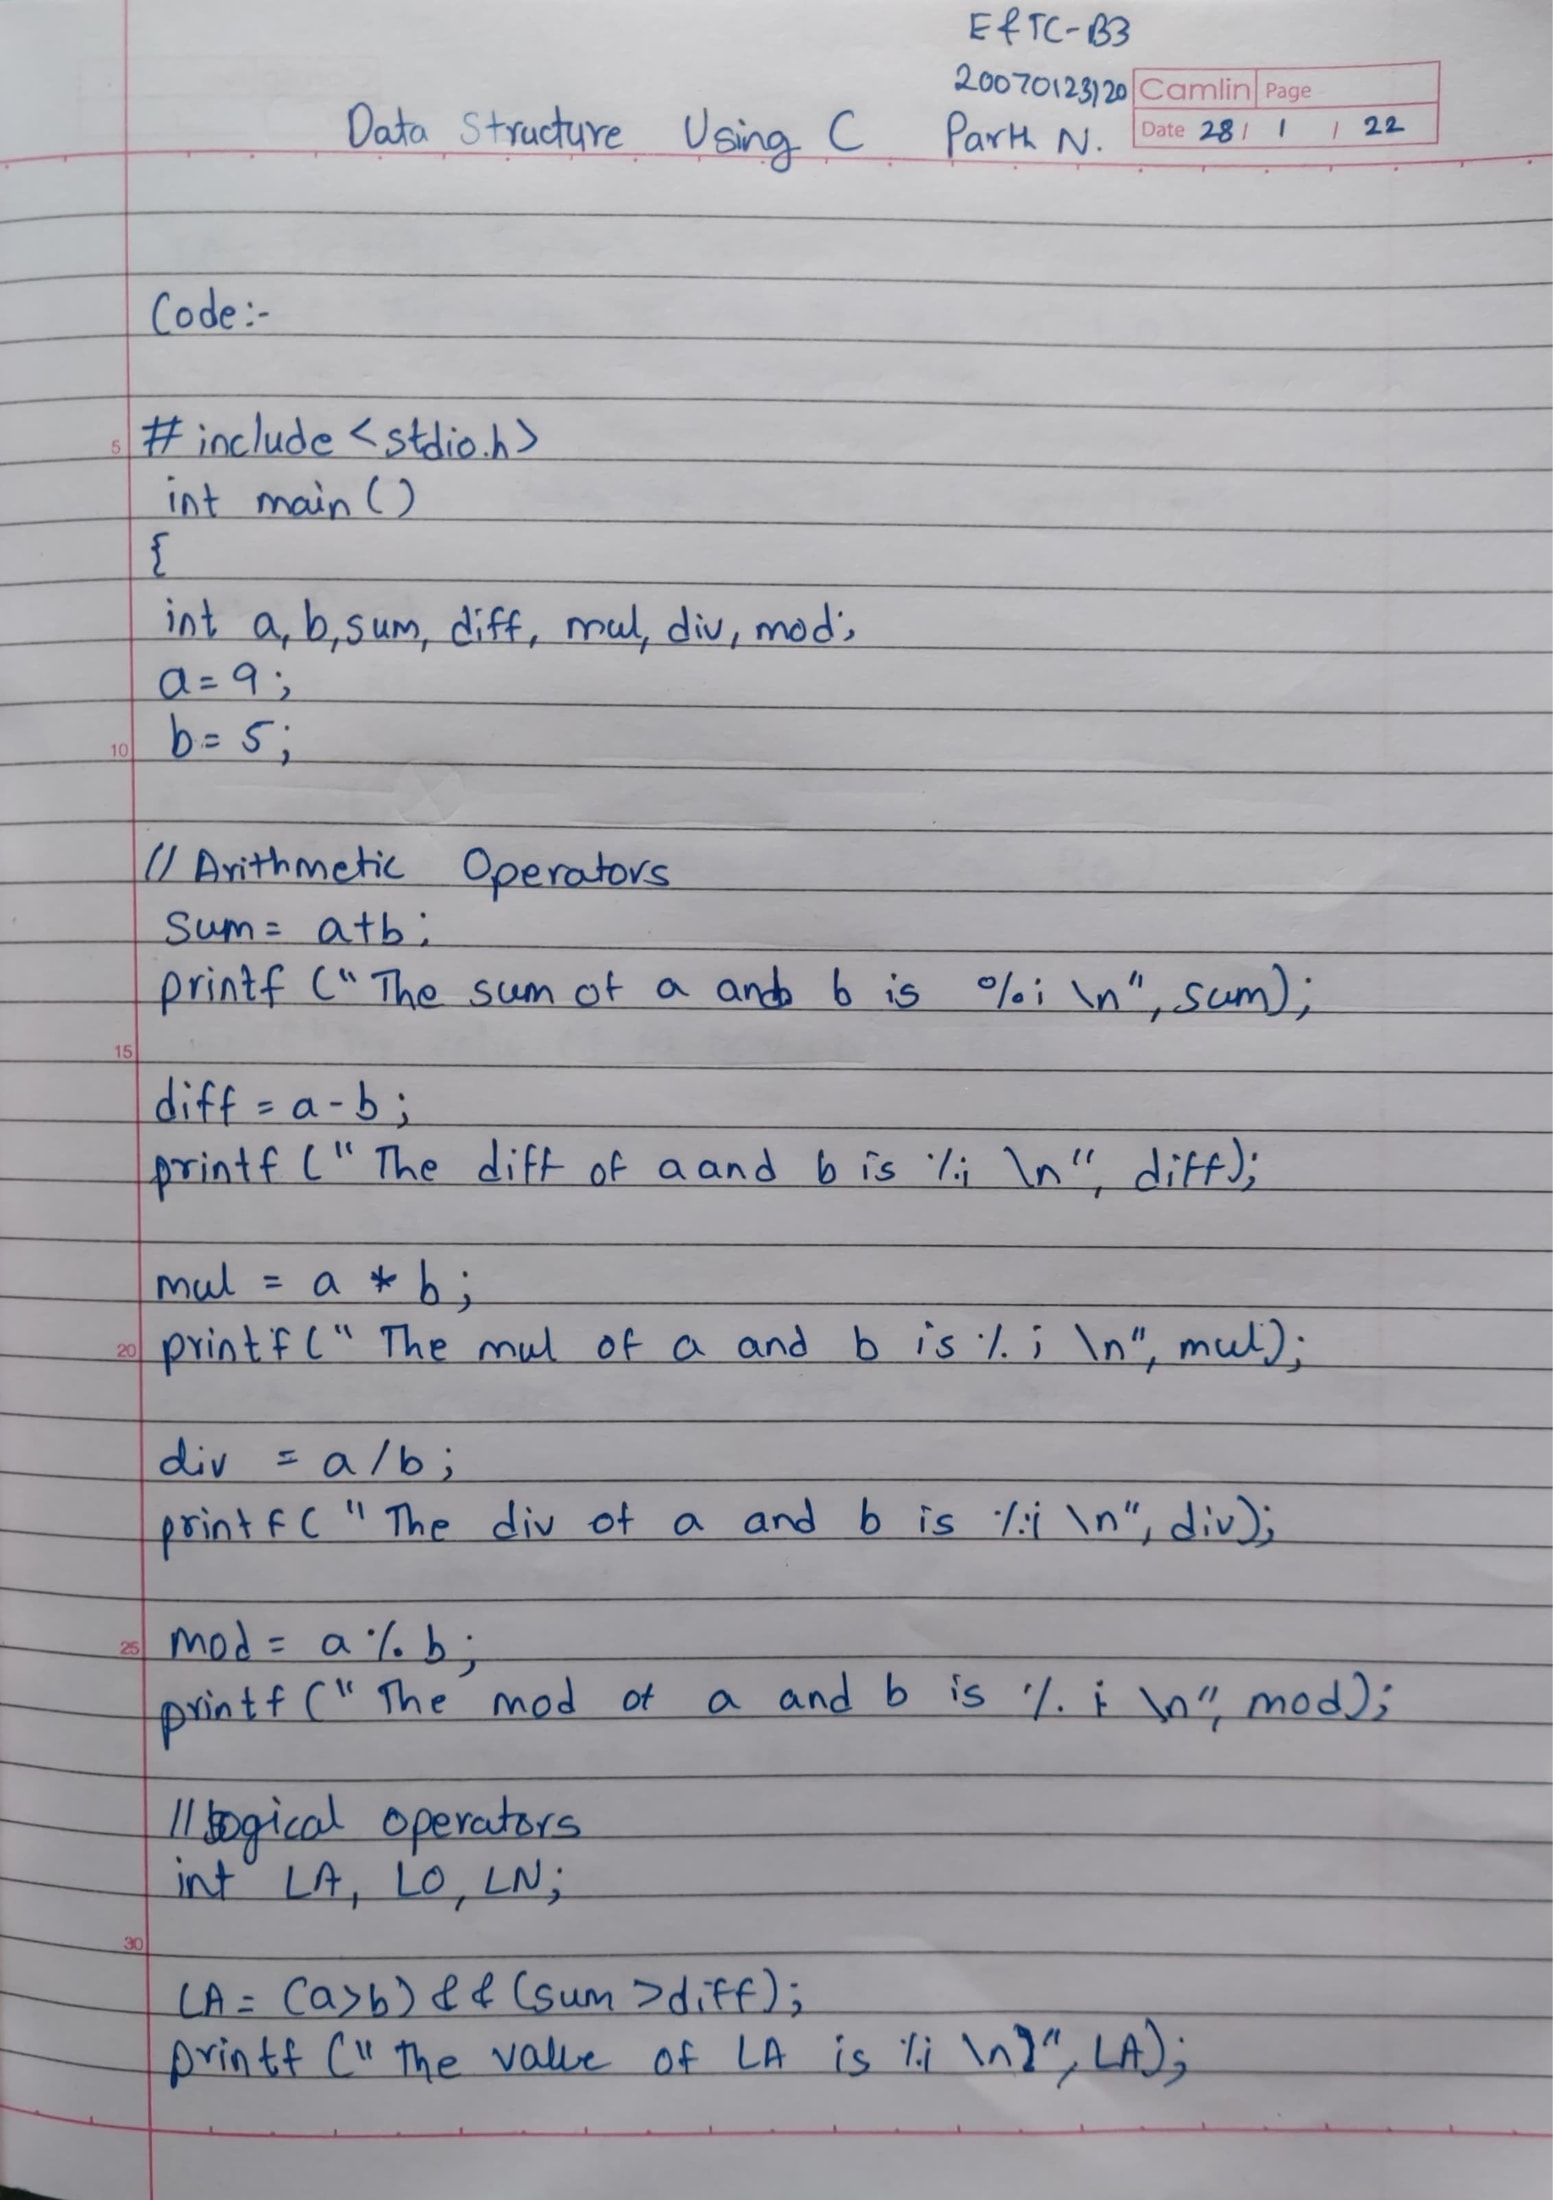 E&TC-B3
20070123120 Camlin Page
Data Structure Using C Parth N. Date 28 / 1 / 22
Code:-
5 #include <stdio.h>
int main ()
{
int a, b, sum, diff, mul, div, mod;
a = 9;
10 b = 5;
// Arithmetic Operators
sum = a+b;
printf (" The sum of a and b is %i \n", sum);
15
diff = a - b;
printf (" The diff of a and b is %i \n", diff);
mul = a * b;
20 printf (" The mul of a and b is % i \n", mul);
div = a / b;
printf ( " The div of a and b is %i \n", div);
25 mod = a % b;
printf (" The mod of a and b is % i \n", mod);
// Logical operators
int LA, LO, LN;
30
LA = (a>b) && (sum >diff);
printf (" The value of LA is %i \n", LA);